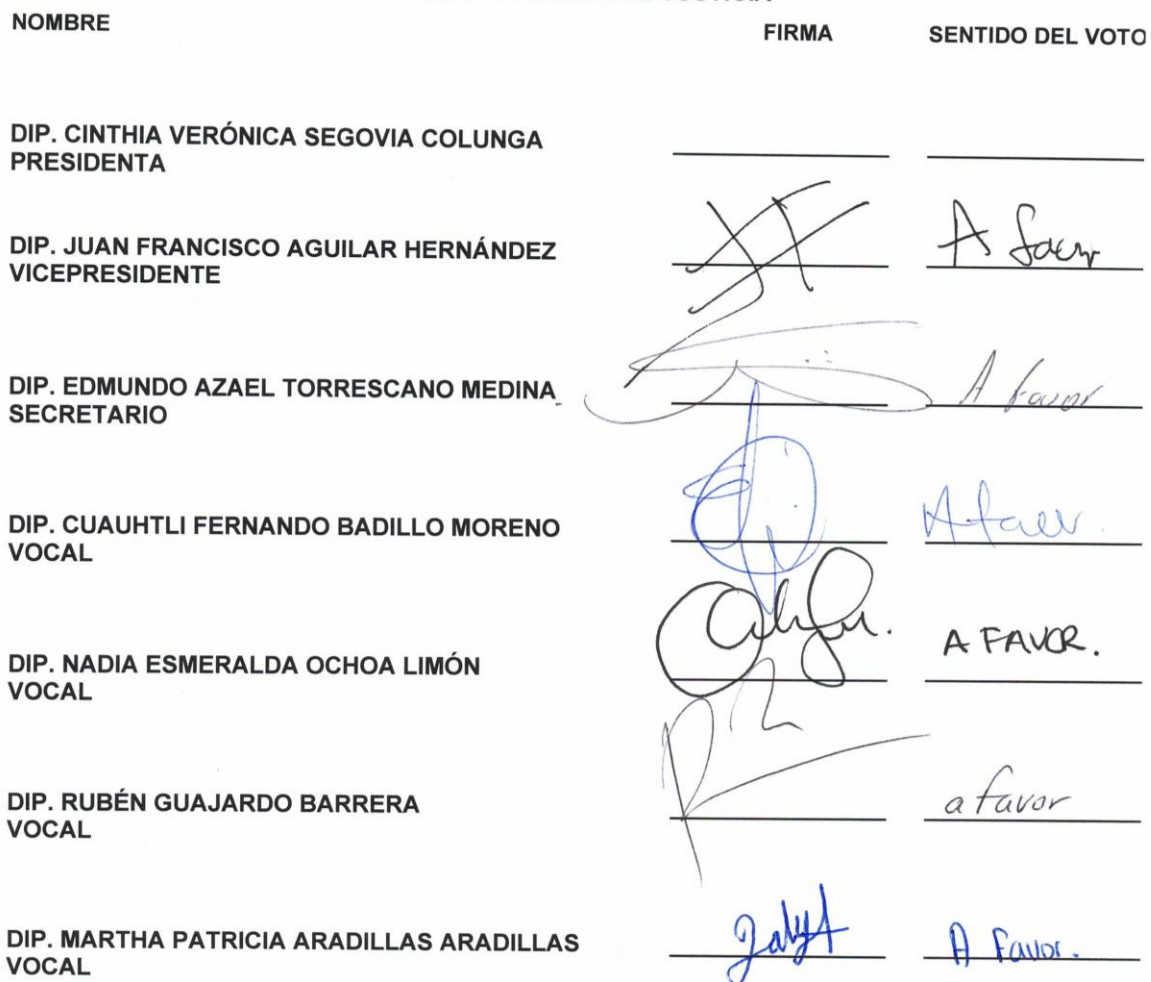 NOMBRE FIRMA SENTIDO DEL VOTO
DIP. CINTHIA VERÓNICA SEGOVIA COLUNGA
PRESIDENTA
DIP. JUAN FRANCISCO AGUILAR HERNÁNDEZ A favor
VICEPRESIDENTE
DIP. EDMUNDO AZAEL TORRESCANO MEDINA A favor
SECRETARIO
DIP. CUAUHTLI FERNANDO BADILLO MORENO A favor.
VOCAL
DIP. NADIA ESMERALDA OCHOA LIMÓN A FAVOR.
VOCAL
DIP. RUBÉN GUAJARDO BARRERA a favor
VOCAL
DIP. MARTHA PATRICIA ARADILLAS ARADILLAS A Favor.
VOCAL